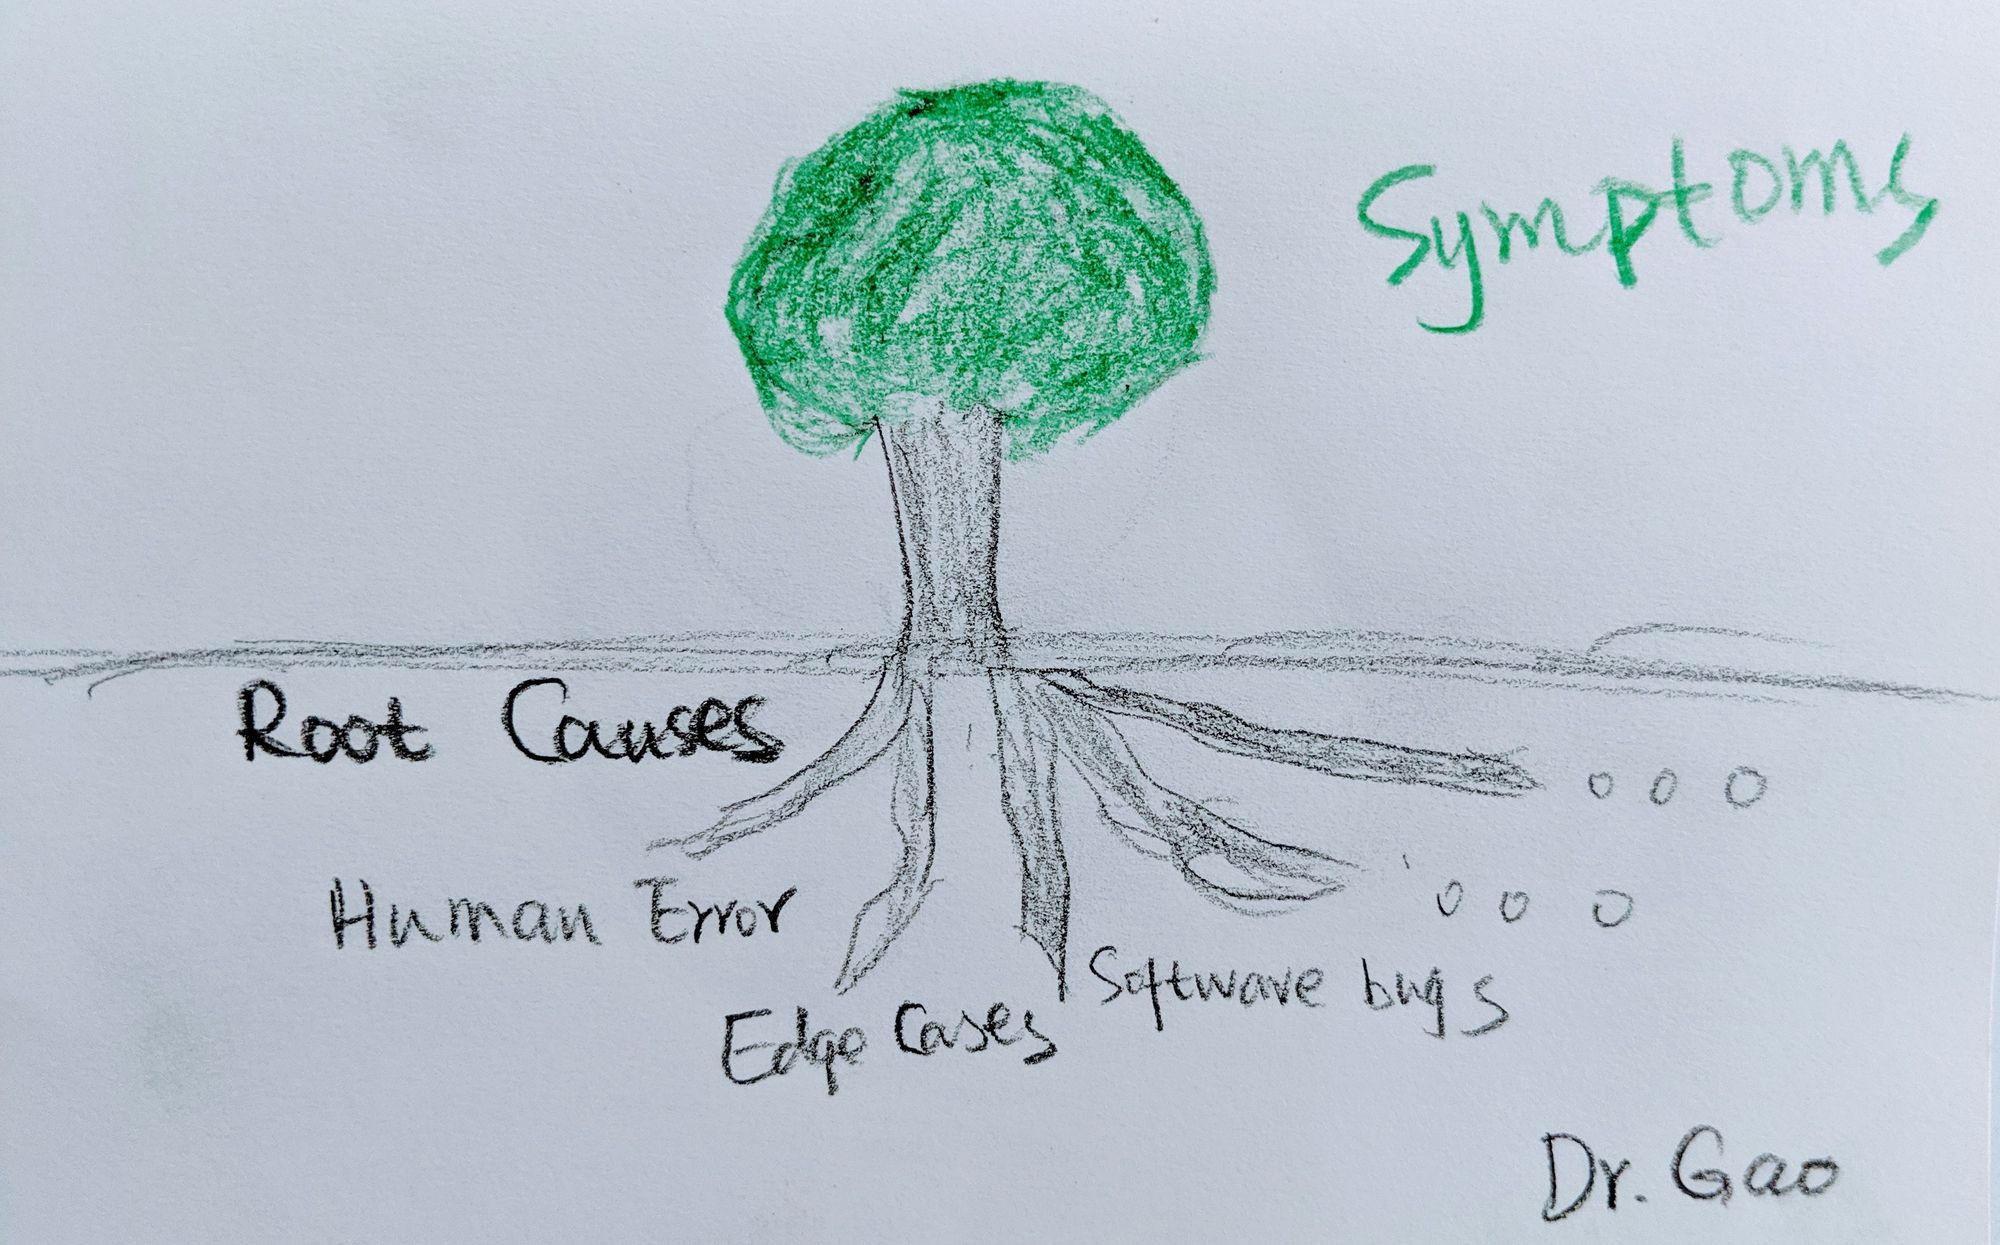 Symptoms
Root Causes
o o o
Human Error
o o o
Software bugs
Edge Cases
Dr. Gao